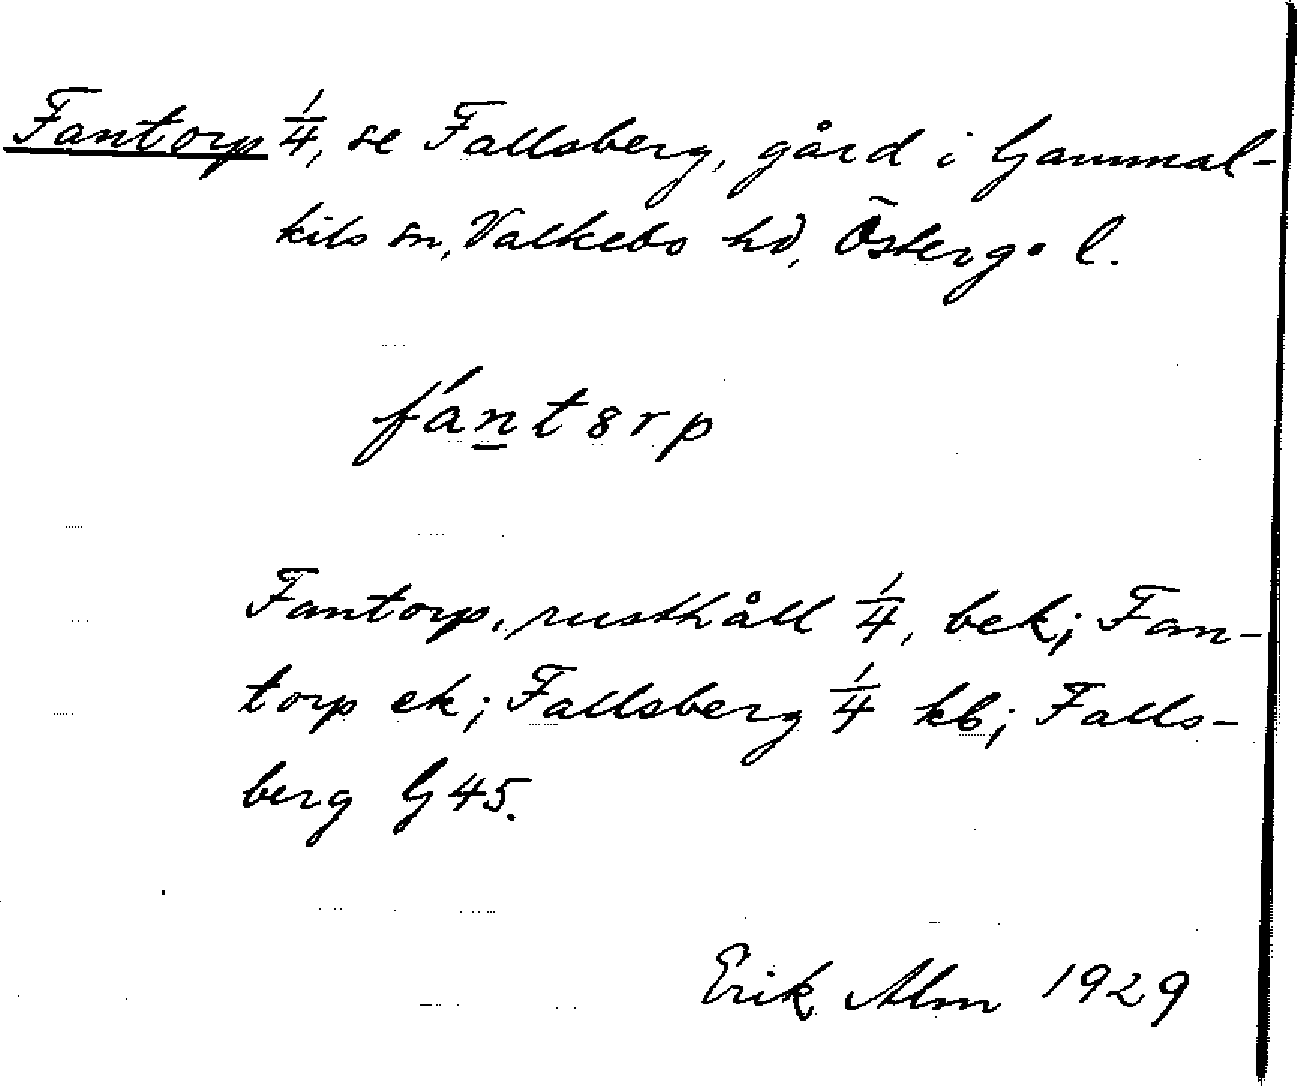 Fantorp 1/4, se Fallsberg, gård i Gammal-
kils sn, Valkebo hd, Österg. l.
fántsrp
Fantorp, rusthåll 1/4, bek; Fan-
torp ek; Fallsberg 1/4 kb; Falls-
berg G 45.
Erik Alm 1929